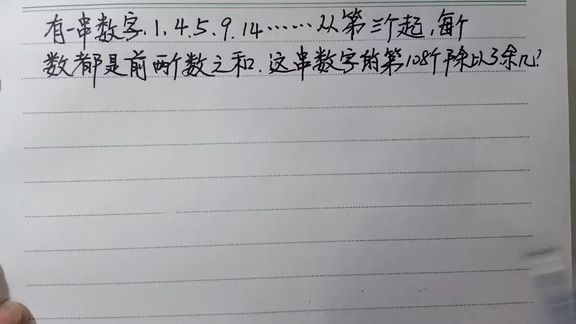 有一串数字.1.4.5.9.14……从第三个起,每个
数都是前两个数之和.这串数字的第108个除以3余几?